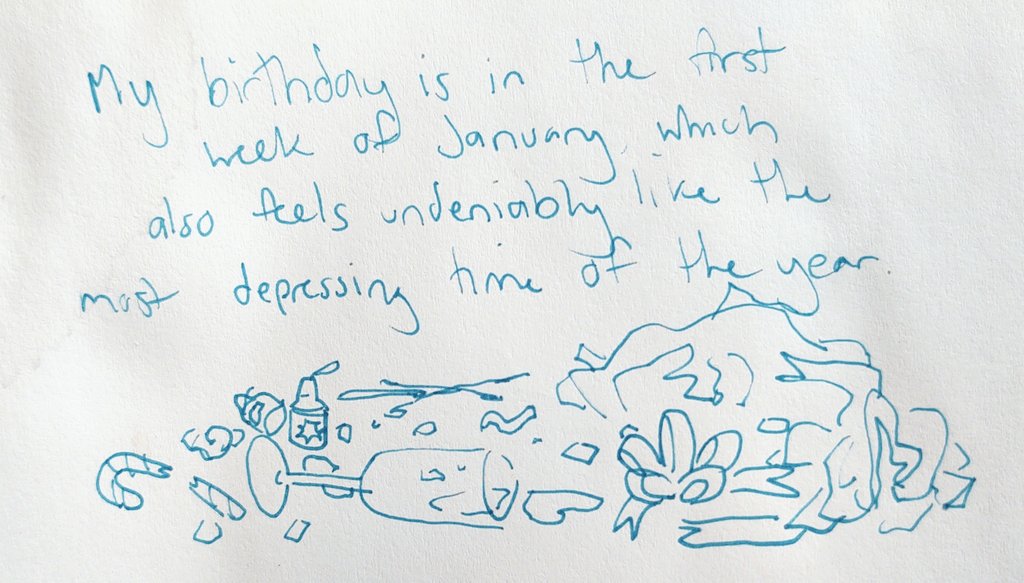 My birthday is in the first
week of January, which
also feels undeniably like the
most depressing time of the year.